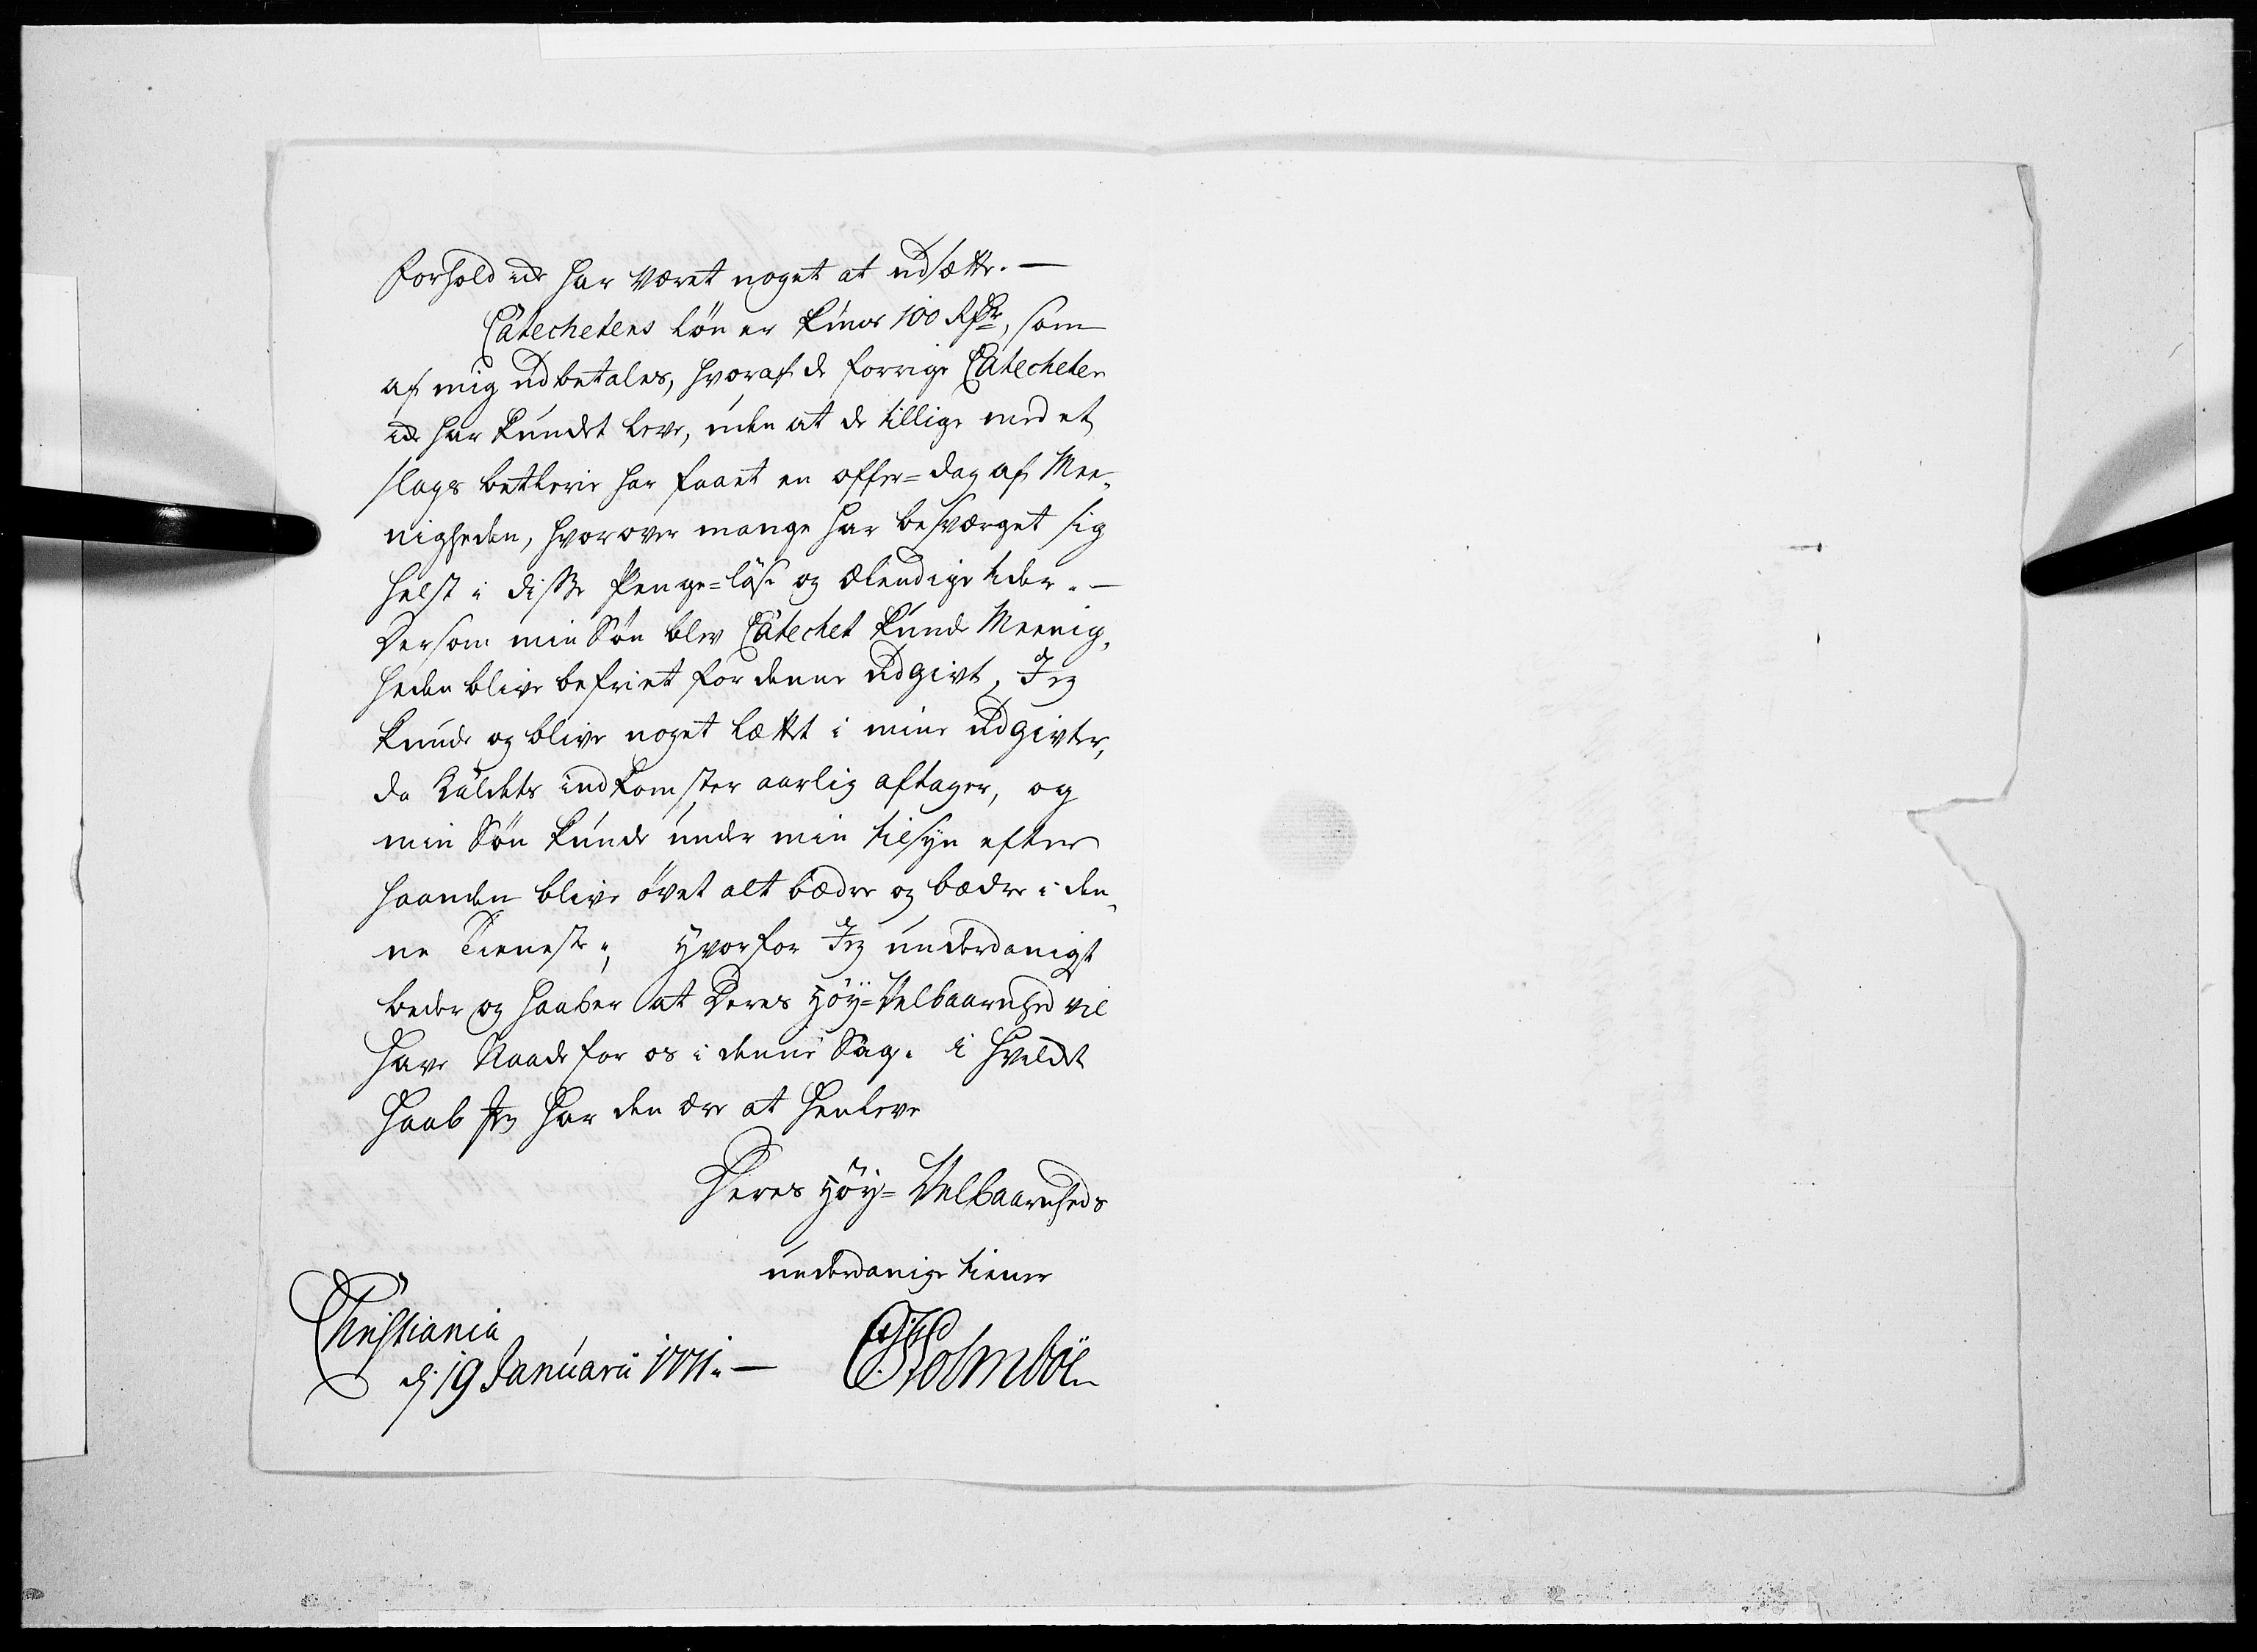 forhold icke har været noget at udsætte. —
Catechetens løn er kuns 100 Rdr, som
af mig udbetales, hvoraf de forrige Catecheter
icke har kundet leve, uden at de tillige med et
slags betlerie har faaet en offer=dag af Mee-
nigheden, hvorover mange har besværget sig
helst i disse Penge=løse og elendige tider. —
Dersom min Søn blev Catechet kunde Meenig-
heden blive befriet for denne udgivt, Jeg
kunde og blive noget lættet i mine udgivter,
da Kaldets indkomster aarlig aftager, og
min Søn kunde under min tilsyn efter
haanden blive øvet alt bædre og bædre i den-
ne Tieneste; hvorfor Jeg underdanigst
beder og haaber at Deres Høy=Velbaarnhed vil
have Naade for os i denne Sag. i hvilket
Haab Jeg har den ære at henleve
Deres Høy=Velbaarnheds
underdanige tiener
Christiania
d. 19 Januarii 1771. —
Holmboe